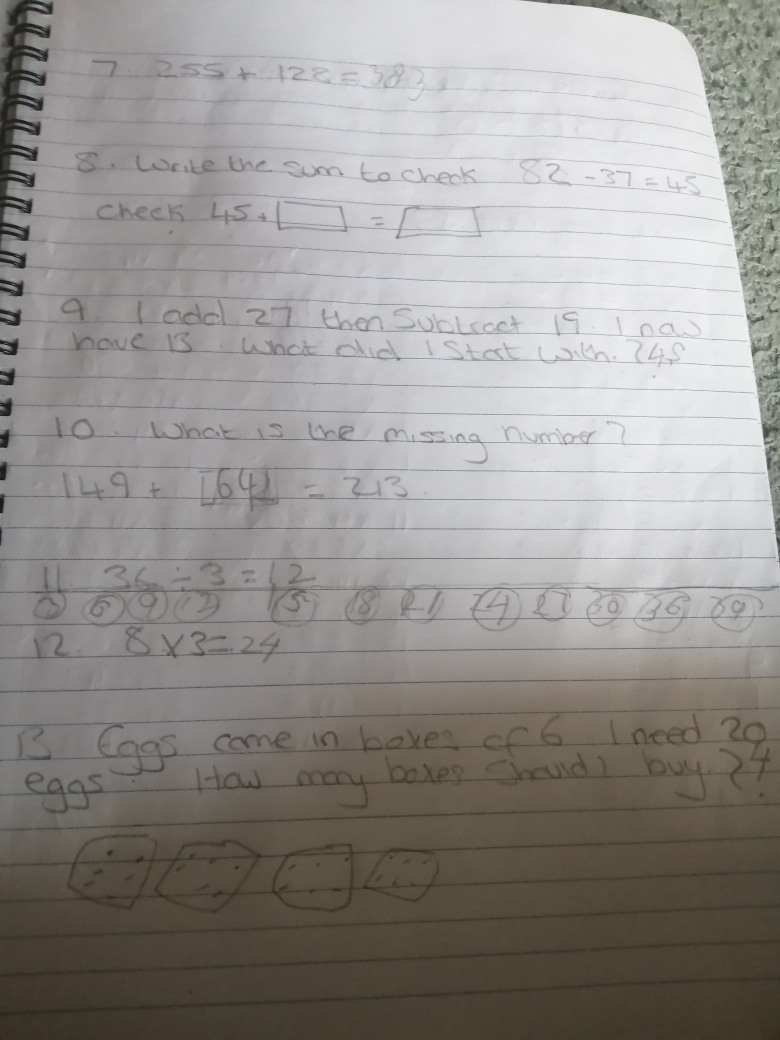 7. 255 + 128 = 383
8. Write the sum to check 82 - 37 = 45
check 45 + =
9 I add 27 then Subtract 19. I now
have 13 What did I Start with. ?
10. What is the missing number?
149 + 64 = 213
11 36 ÷ 3 = 12
6 9 12 15 18 21 24 27 30 36
12. 8 x 3 = 24
13 Eggs come in boxes of 6 I need 20
eggs. How many boxes should I buy ? 4